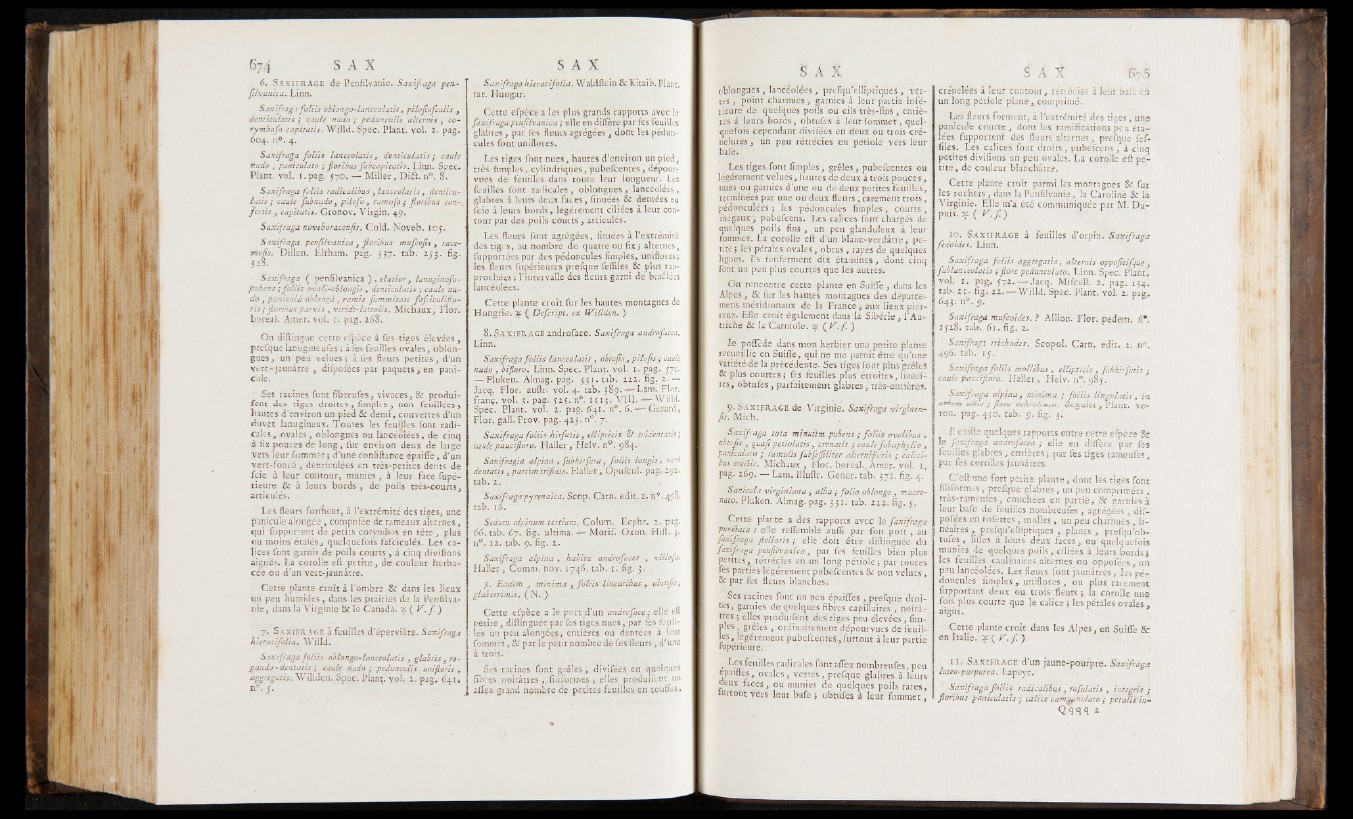 674 S A X
6. SAXIFRAGE de Penfilvanie. Saxifraga pen-
filvanica. Linn.
Saxifraga foliis oblongo-lanceolatis, pilofiufculis,
denticulatis ; caule nudo ; pedunculis alternis, co-
rymbofo capitatis. Willd. Spec. Plant. vol. 2. pag.
604. n°. 4.
Saxifraga foliis lanceolatis, denticulatis ; caule
nudo, paniculato ; floribus fubcapitatis. Linn. Spec.
Plant. vol. 1. pag. 570. — Miller, Dict. n°. 8.
Saxifraga foliis radicalibus, lanceolatis, denticu-
latis ; caule fubnudo, pilofo, ramofo ; floribus con-
fertis, capitatis. Gronov. Virgin. 49.
Saxifraga noveboracenfis. Cold. Noveb. 105.
Saxifraga penfilvanica, floribus mufcofis, race-
mofis. Dillen. Eltham. pag. 337. tab. 253. fig.
328.
Saxifraga ( penfilvanica ), elatior, lanuginofo-
pubens ; foliis ovali-oblongis, denticulatis ; caule nu-
do, paniculâ oblongâ, ramis fummitate fafciculiflo-
ris ; floribus parvis, viridi-luteolis. Michaux, Flor.
boreal. Amer. vol. 1. pag. 268.
On diftingue cette efpèce à fes tiges élevées,
prefque lanugineufes ; à fes feuilles ovales, oblon-
gues, un peu velues ; à fes fleurs petites, d'un
vert-jaunâtre, difpofées par paquets, en pani-
cule.
Ses racines font fibreufes, vivaces, & produi-
fent des tiges droites, fimples, non feuillées,
hautes d'environ un pied & demi, couvertes d'un
duvet lanugineux. Toutes les feuilles font radi-
cales, ovales, oblongues ou lancéolées, de cinq
à fix pouces de long, fur environ deux de large
vers leur fommet ; d'une confiftance épaiffe, d'un
vert-foncé, denticulées en très-petites dents de
fcie à leur contour, munies, à leur face fupé-
rieure & à leurs bords, de poils très-courts,
articulés.
Les fleurs forment, à l'extrémité des tiges, une
panicule alongée, compofée de rameaux alternes,
qui fupportent de petits corymbes en tête, plus
ou moins étalés, quelquefois fafciculés. Les ca-
lices font garnis de poils courts, à cinq divifions
aiguës. La corolle eft petite, de couleur herba-
cée ou d'un vert-jaunâtre.
Cette plante croît à l'ombre & dans les lieux
un peu humides, dans les prairies de la Penfilva-
nie, dans la Virginie & le Canada. ♃ ( V. f. )
7. SAXIFRAGE à feuilles d'épervière. Saxifraga
hieracifolia. Willd.
Saxifraga foliis oblongo-lanceolatis, glabris, re-
pando-dentatis ; caule nudo ; pedunculis unifloris,
aggregatis. Willden. Spec. Plant. vol. 2. pag. 641.
n°. 5.
S A X
Saxifraga hieracifolia. Waldftein & Kitaib. Plant.
rar. Hungar.
Cette efpèce a les plus grands rapports avec le
faxifraga penfilvanica ; elle en diffère par fes feuilles
glabres, par fes fleurs agrégées, dont les pédon-
cules font uniflores.
Les tiges font nues, hautes d'environ un pied,
très-fimples, cylindriques, pubefcentes, dépour-
vues de feuilles dans toute leur longueur. Les
feuilles font radicales, oblongues, lancéolées,
glabres à leurs deux faces, finuées & dentées en
fcie à leurs bords, légérement ciliées à leur con-
tour par des poils courts, articulés.
Les fleurs font agrégées, fituées à l'extrémité
des tiges, au nombre de quatre ou fix ; alternes,
fupportées par des pédoncules fimples, uniflores ;
les fleurs fupérieures prefque feffiles & plus rap-
prochées ; l'intervalle des fleurs garni de bractées
lancéolées.
Cette plante croît fur les hautes montagnes de
Hongrie. ♃ ( Defcript. ex Willden. )
8. SAXIFRAGE androface. Saxifraga androfacea.
Linn.
Saxifraga foliis lanceolatis, obtufis, pilofis ; caule
nudo, bifloro. Linn. Spec. Plant. vol. 1. pag. 571.
— Pluken. Almag. pag. 331. tab. 222. fig. 2. —
Jacq. Flor. auftr. vol. 4. tab. 389. — Lam. Flor.
franç. vol. 3. pag. 525. n°. 1113. VIII. — Willd.
Spec. Plant. vol. 2. pag. 641. n°. 6. — Gerard,
Flor. gall. Prov. pag. 423. n°. 7.
Saxifraga foliis hirfutis, ellipticis & tridentatis ;
caule paucifloro. Haller, Helv. n°. 984.
Saxifragia alpina, fubhirfuta, foliis longis, rarò
dentatis, partim trifidis. Haller, Opufcul. pag. 292.
tab. 2.
Saxifraga pyrenaica. Scop. Carn. edit. 2. n°. 498.
tab. 16.
Sedum alpinum tertium. Colum. Ecphr. 2. pag.
66. tab. 67. fig. ultima. — Morif. Oxon. Hift. 3.
n°. 12. tab. 9. fig. 2.
Saxifraga alpina, habitu androfaces, villofo.
Haller, Comm. nov. 1746. tab. 1. fig. 3.
β. Eadem, minima, foliis linearibus, obtufis,
glaberrimis. ( N. )
Cette efpèce a le port d'un androface ; elle eft
petite, diftinguée par fes tiges nues, par fes feuil-
les un peu alongées, entières ou dentées à leur
fommet, & par le petit nombre de fes fleurs, d'une
à trois.
Ses racines font grêles, divifées en quelques
fibres noirâtres, filiformes ; elles produifent un
affez grand nombre de petites feuilles en touffes,
S A X
oblongues, lancéolées, prefqu'elliptiques, ver-
tes, point charnues, garnies à leur partie infé-
rieure de quelques poils ou cils très-fins, entiè-
res à leurs bords, obtufes à leur fommet, quel-
quefois cependant divifées en deux ou trois cré-
nelures, un peu rétrécies en pétiole vers leur
bafe.
Les tiges font fimples, grêles, pubefcentes ou
légérement velues, hautes de deux à trois pouces,
nues ou garnies d'une ou de deux petites feuilles,
terminées par une ou deux fleurs, rarement trois,
pédonculées ; les pédoncules fimples, courts,
inégaux, pubefcens. Les calices font chargés de
quelques poils fins, un peu glanduleux à leur
fommet. La corolle eft d'un blanc-verdâtre, pe-
tite ; les pétales ovales, obtus, rayés de quelques
lignes. Ils renferment dix étamines, dont cinq
font un peu plus courtes que les autres.
On rencontre cette plante en Suiffe, dans les
Alpes, & fur les hautes montagnes des départe-
mens méridionaux de la France, aux lieux pier-
reux. Elle croît également dans la Sibérie, l'Au-
triche & la Carniole. ♃ ( V. f. )
Je poffède dans mon herbier une petite plante
recueillie en Suiffe, qui ne me paroît être qu'une
variété de la précédente. Ses tiges font plus grêles
& plus courtes ; fes feuilles plus étroites, linéai-
res, obtufes, parfaitement glabres, très-entières.
9. SAXIFRAGE de Virginie. Saxifraga virginien-
fis. Mich.
Saxifraga tota minutim pubens ; foliis ovalibus,
obtufis, quafi petiolatis, crenatis ; caule fubaphyllo,
paniculato ; ramulis fubfeffiliter alternifloris ; calici-
bus erectis. Michaux, Flor. boreal. Amer. vol. 1.
pag. 269. — Lam. Illuftr. Gener. tab. 372. fig. 4.
Sanicula virginiana, alba ; folio oblongo, mucro-
nato. Pluken. Almag. pag. 331. tab. 222. fig. 5.
Cette plante a des rapports avec le faxifraga
punctata : elle reffemble auffi par fon port, au
faxifraga ftellaris ; elle doit être diftinguée du
faxifraga penfilvanica, par fes feuilles bien plus
petites, rétrécies en un long pétiole ; par toutes
fes parties légérement pubefcentes & non velues,
& par fes fleurs blanches.
Ses racines font un peu épaiffes, prefque droi-
tes, garnies de quelques fibres capillaires, noirâ-
tres ; elles produifent des tiges peu élevées, fim-
ples, grêles, ordinairement dépourvues de feuil-
les, légérement pubefcentes, furtout à leur partie
fupérieure.
Les feuilles radicales font affez nombreufes, peu
épaiffes, ovales, vertes, prefque glabres à leurs
deux faces, ou munies de quelques poils rares,
furtout vers leur bafe ; obtufes à leur fommet,
S A X 675
crénelées à leur contour, rétrécies à leur bafe en
un long pétiole plane, comprimé.
Les fleurs forment, à l'extrémité des tiges, une
panicule courte, dont les ramifications peu éta-
lées fupportent des fleurs alternes, prefque fef-
files. Les calices font droits, pubefcens, à cinq
petites divifions un peu ovales. La corolle eft pe-
tite, de couleur blanchâtre.
Cette plante croît parmi les montagnes & fur
les rochers, dans la Penfilvanie, la Caroline & la
Virginie. Elle m'a été communiquée par M. Du-
puis. ♃ ( V. f. )
10. SAXIFRAGE à feuilles d'orpin. Saxifraga
fedoides. Linn.
Saxifraga foliis aggregatis, alternis oppofitifque,
fublanceolatis ; flore pedunculato. Linn. Spec. Plant.
vol. 1. pag. 572. — Jacq. Mifcell. 2. pag. 134.
tab. 21. fig. 22. — Willd. Spec. Plant. vol. 2. pag.
643. n°. 9.
Saxifraga mufcoides. ? Allion. Flor. pedem. n°.
1528. tab. 61. fig. 2.
Saxifraga trichodes. Scopol. Carn. edit. 2. n°.
496. tab. 15.
Saxifraga foliis mollibus, ellipticis, fubhirfutis ;
caule paucifloro. Haller, Helv. n°. 985.
Saxifraga alpina, minima ; foliis lingulatis, in
orbem actis ; flore ochroleuco. Seguier, Plant. ve-
ron. pag. 450. tab. 9. fig. 3.
Il exifte quelques rapports entre cette efpèce &
le faxifraga androfacea ; elle en diffère par fes
feuilles glabres, entières ; par fes tiges rameufes,
par fes corolles jaunâtres.
C'eft une fort petite plante, dont les tiges font
filiformes, prefque glabres, un peu comprimées,
très-rameufes, couchées en partie, & garnies à
leur bafe de feuilles nombreufes, agrégées, dif-
pofées en rofettes, molles, un peu charnues, li-
néaires, prefqu'elliptiques, planes, prefqu'ob-
tufes, liffes à leurs deux faces, ou quelquefois
munies de quelques poils, ciliées à leurs bords ;
les feuilles caulinaires alternes ou oppofées, un
peu lancéolées. Les fleurs font jaunâtres, les pé-
doncules fimples, uniflores, ou plus rarement
fupportant deux ou trois fleurs ; la corolle une
fois plus courte que le calice ; les pétales ovales,
aigus.
Cette plante croît dans les Alpes, en Suiffe &
en Italie. ♃ ( V. f. )
11. SAXIFRAGE d'un jaune-pourpre. Saxifraga
luteo-purpurea. Lapeyr.
Saxifraga foliis radicalibus, rofulatis, integris ;
floribus paniculatis ; calice campanulato ; petalis in-
Qqqq 2